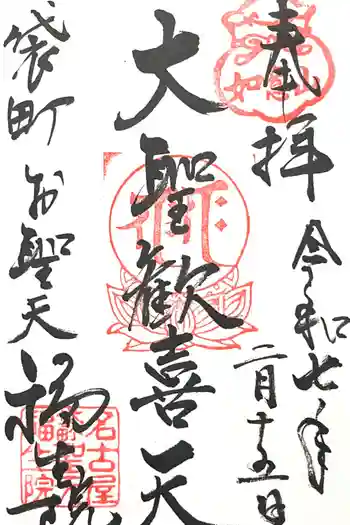 奉拝
令和七年
二月十五日
大聖歓喜天
袋町お聖天
福生院
名古屋
福生院